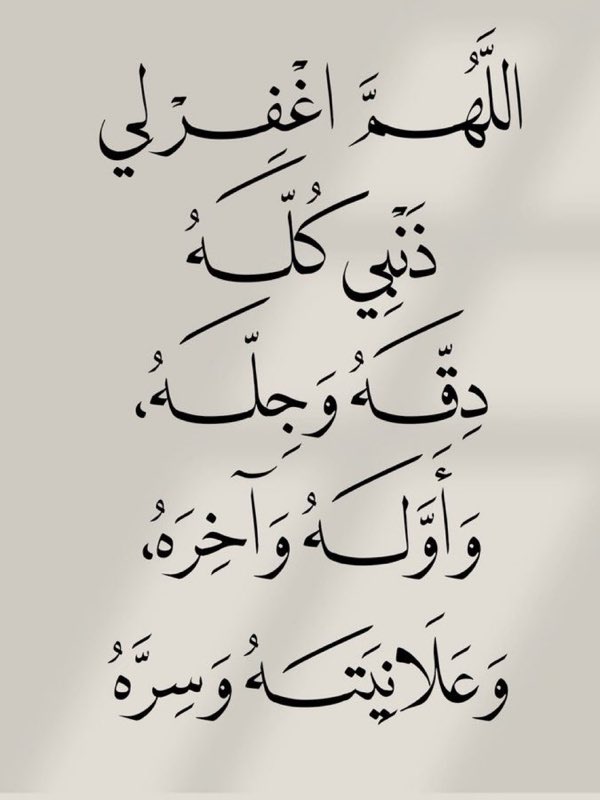 اللَّهُمَّ اغْفِرْ لِي
ذَنْبِي كُلَّهُ
دِقَّهُ وَجِلَّهُ،
وَأَوَّلَهُ وَآخِرَهُ،
وَعَلَانِيَتَهُ وَسِرَّهُ